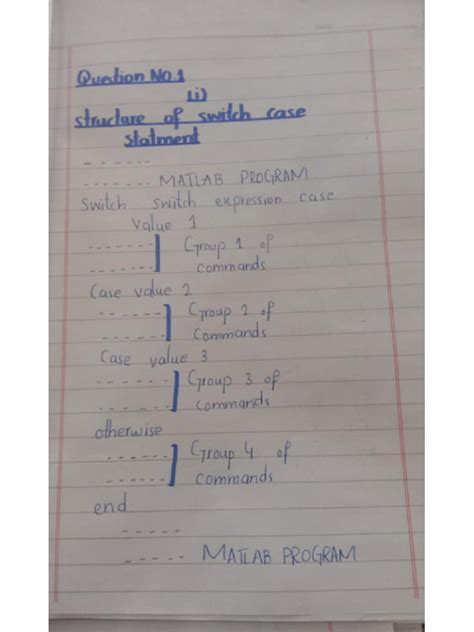 Question No.1
(i)
structure of switch case
statment
- - - - - -
- - - - - - - MATLAB PROGRAM
Switch switch expression case
Value 1
- - - - - - - ] Group 1 of
- - - - - - - commands
Case value 2
- - - - - - ] Group 2 of
- - - - - - Commands
Case value 3
- - - - - - - ] Group 3 of
- - - - - - - commands
otherwise
- - - - - - ] Group 4 of
- - - - - - commands
end
- - - - -
- - - - - MATLAB PROGRAM